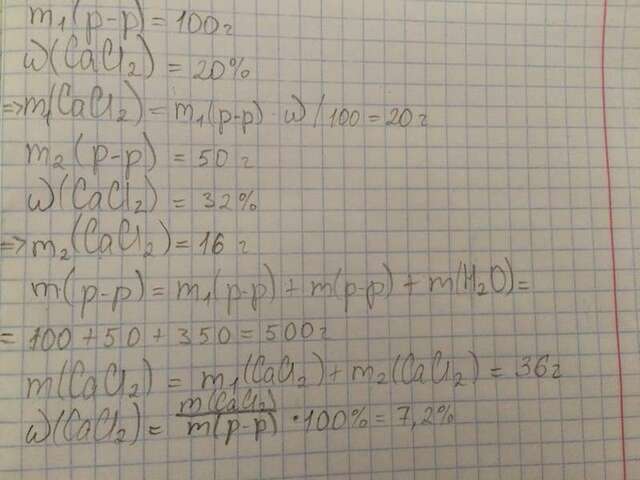 m₁(р-р) = 100г
ω(CaCl₂) = 20%
=> m₁(CaCl₂) = m₁(р-р) · ω/100 = 20г
m₂(р-р) = 50г
ω(CaCl₂) = 32%
=> m₂(CaCl₂) = 16г
m(р-р) = m₁(р-р) + m(р-р) + m(H₂O) =
= 100 + 50 + 350 = 500г
m(CaCl₂) = m₁(CaCl₂) + m₂(CaCl₂) = 36г
ω(CaCl₂) = m(CaCl₂)/m(р-р) · 100% = 7,2%